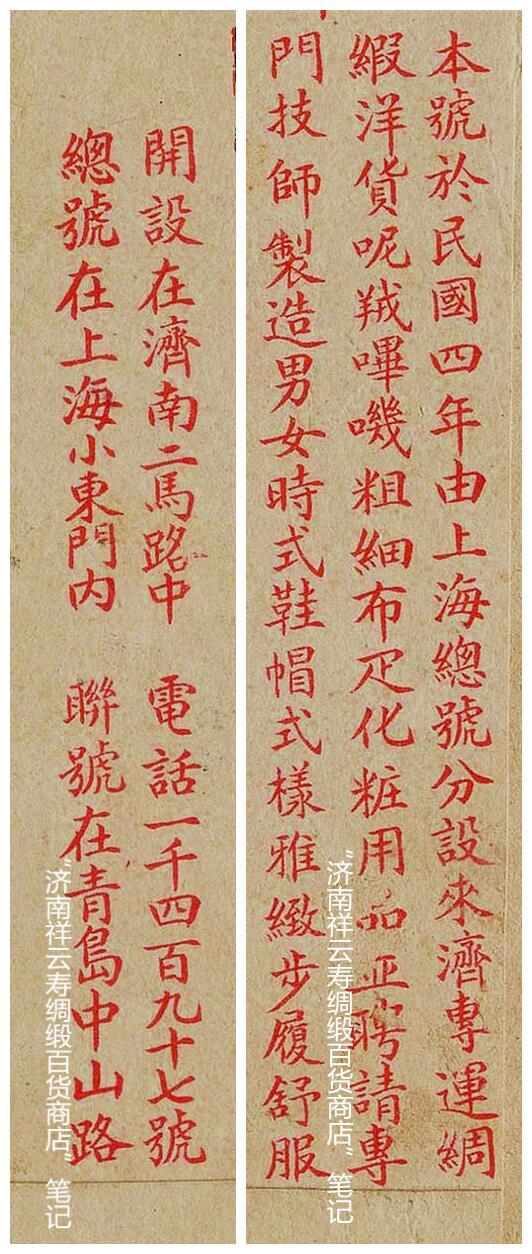 本號於民國四年由上海總號分設來濟專運綢
緞洋貨呢羢嗶嘰粗細布疋化粧用品並聘請專
門技師製造男女時式鞋帽式樣雅緻步履舒服
“济南祥云寿绸缎百货商店” 笔记
開設在濟南二馬路中 電話一千四百九十七號
總號在上海小東門内 聯號在青島中山路
“济南祥云寿绸缎百货商店” 笔记